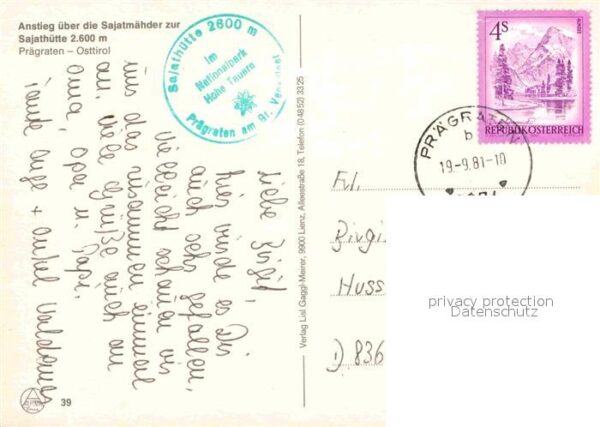 Anstieg über die Sajatmähder zur
Sajathütte 2.600 m
Prägraten – Osttirol
Sajathütte 2600 m
Im
Nationalpark
Hohe Tauern
Prägraten am Gr. Venediger
4S
REPUBLIK ÖSTERREICH
PRÄGRATEN
b
19.-9.81-10
Verlag Lisl Gaggl-Meirer, 9900 Lienz, Alleestraße 18, Telefon (04852) 3325
Liebe Birgit,
hier würde es Dir
auch sehr gefallen.
Vielleicht schauen wir
uns das zusammen einmal
an, viele Grüße auch an
Oma, Opa u. Papa.
Tante Inge + Onkel
Frl.
Birgi
Huss
D 836
privacy protection
Datenschutz
39